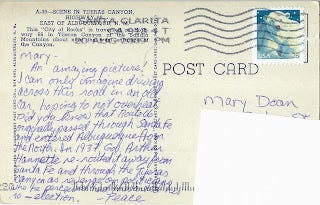 A-30—SCENE IN TIJERAS CANYON,
HIGHWAY 66
EAST OF ALBUQUERQUE, N.
This "City of Rocks" is
way 66 in Tijeras Canyon of the
Mountains about
the Canyon.
SANTA CLARITA
POST CARD
Mary-
An amazing picture!
I can only imagine driving
across this road in an old
car, hoping to not overheat.
Did you know that Route 66
originally passed through Santa Fe
and entered Albuquerque from
the North. In 1937, Gov. Arthur
Hannette re-routed it away from
Santa Fe and through the Tijeras
Canyon as revenge on politicians
who he
re-election. -Peace
Mary Dean